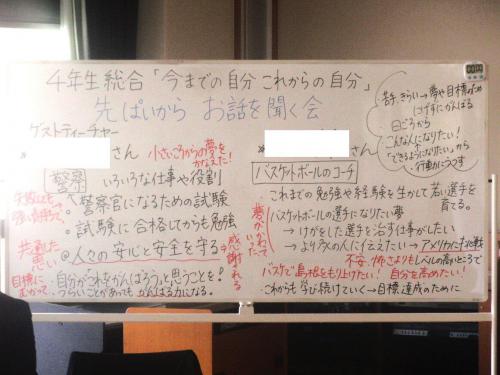 4年生総合「今までの自分 これからの自分」
先ぱいから お話を聞く会
ゲストティーチャー
さん
小さいころからの夢を
かなえた!
警察
いろいろな仕事や役割
・警察官になるための試験
・試験に合格してからも勉強
◎人々の安心と安全を守る
感謝される
失敗しても
強い気持ちで
共通した
思い
目標に
むかって
・自分が「これをがんばろう」と思うことを!
つらいことがあってもがんばる力になる。
さん
バスケットボールのコーチ
これまでの勉強や経験を生かして若い選手を
育てる。
夢がかわって
いって
バスケットボールの選手になりたい夢
→けがをした選手を治す仕事がしたい
→より多くの人に伝えたい→アメリカに挑戦
不安、怖さよりもレベルの高いところで
バスケで島根をもり上げたい! 自分を高めたい!
これからも学び続けていく→目標達成のために
苦手、きらい→夢や目標のため
にげずにがんばる
日ごろから
こんな人になりたい!
「できるようになりたい」から
行動にうつす